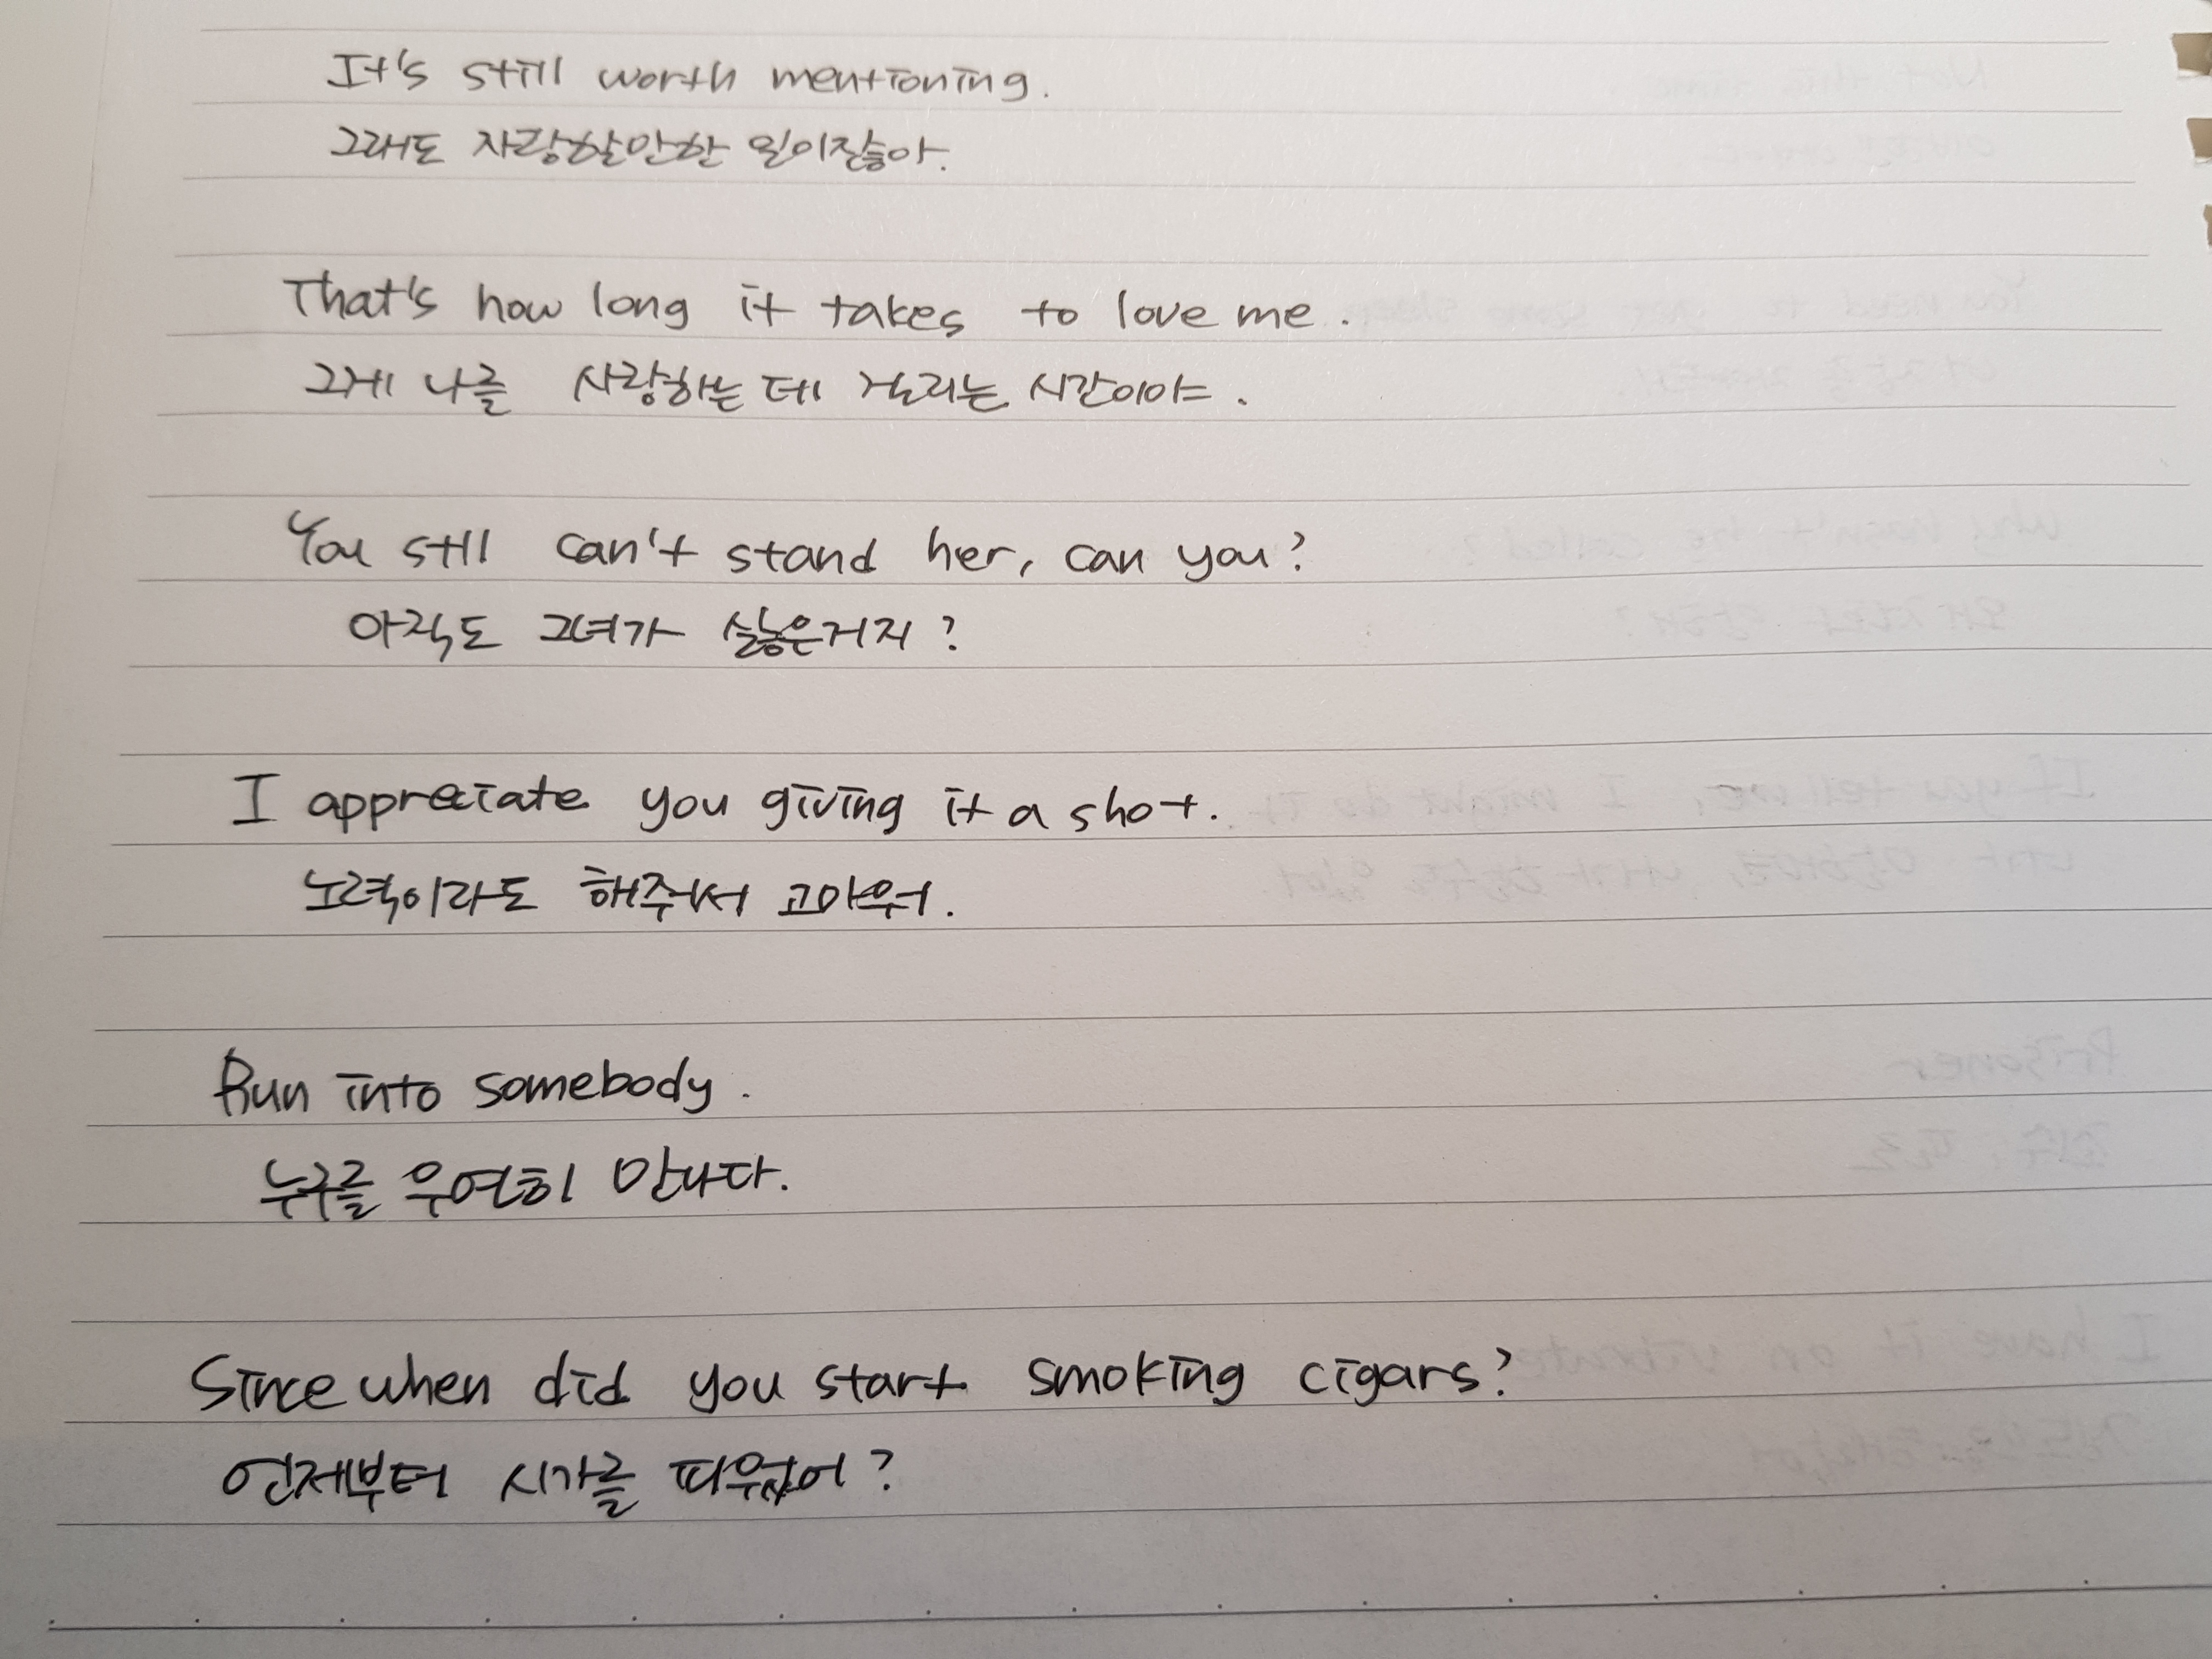 It's still worth mentioning.
그래도 자랑할만한 일이잖아.
That's how long it takes to love me.
그게 나를 사랑하는 데 걸리는 시간이야.
You still can't stand her, can you?
아직도 그녀가 싫은거지?
I appreciate you giving it a shot.
노력이라도 해주서 고마워.
Run into somebody.
누구를 우연히 만나다.
Since when did you start smoking cigars?
언제부터 시가를 피웠어?